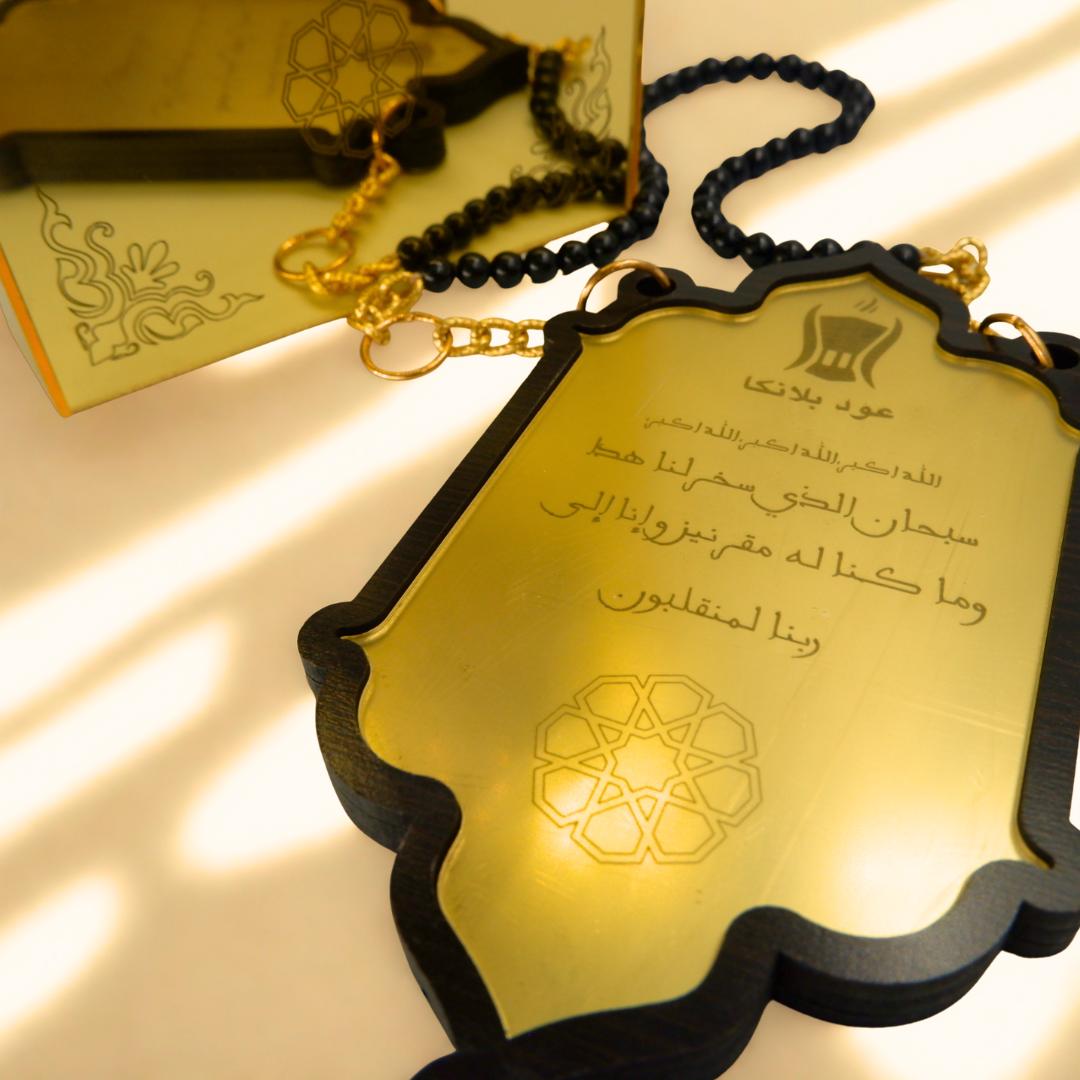 عود بلانكا
الله اكبر،الله اكبر،الله اكبر
سبحان الذي سخر لنا هذا
وما كنا له مقرنين وإنا إلى
ربنا لمنقلبون